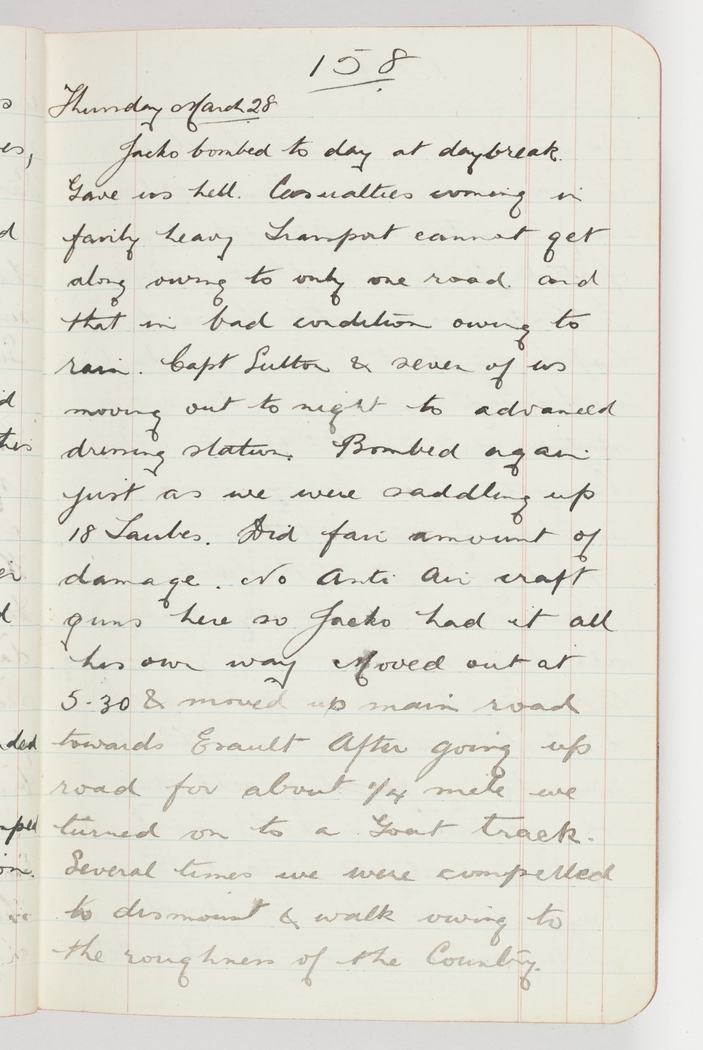 158
Thursday March 28
Jacko bombed to day at daybreak.
Gave us hell. Casualties coming in
fairly heavy Transport cannot get
along owing to only one road. and
that in bad condition owing to
rain. Capt Sutton & seven of us
moving out to night to advanced
dressing station. Bombed again
just as we were saddling up
18 Taubes. Did fair amount of
damage. No Anti Air craft
guns here so Jacko had it all
his own way Moved out at
5-30 & moved up main road
towards Esault After going up
road for about 1/4 mile we
turned on to a Goat track.
Several times we were compelled
to dismount & walk owing to
the roughness of the Country.